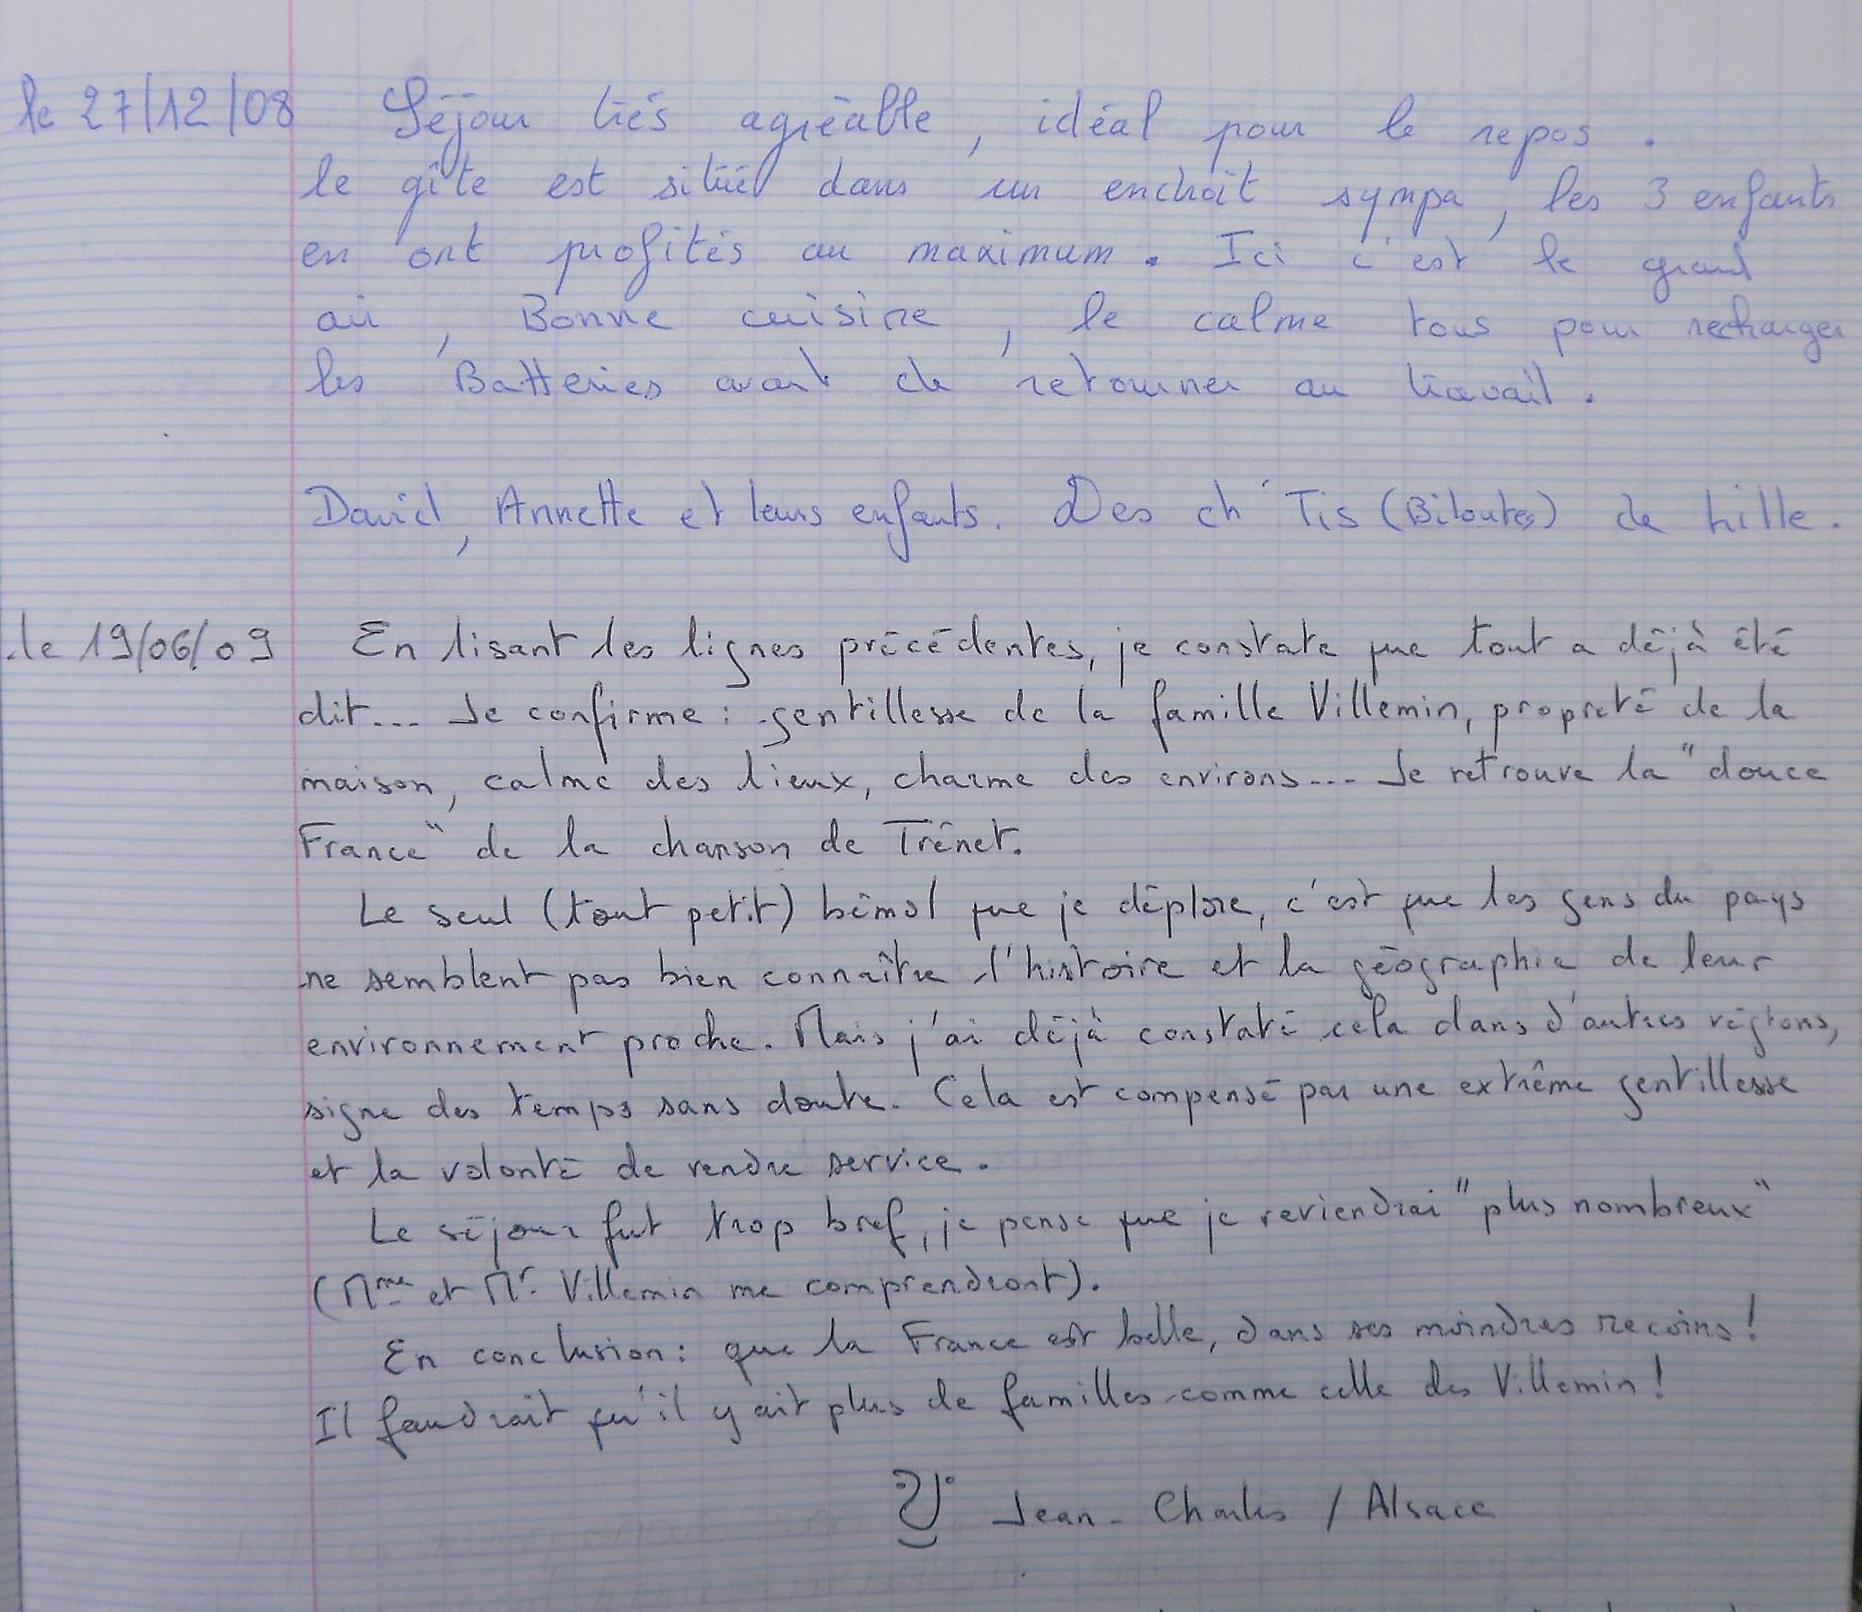 le 27/12/08 Séjour très agréable, idéal pour le repos.
le gîte est situé dans un endroit sympa, les 3 enfants
en ont profités au maximum. Ici c'est le grand
air, Bonne cuisine, le calme tous pour recharger
les Batteries avant de retourner au travail.
David, Annette et leurs enfants. Des ch'Tis (Biloutes) de Lille.
le 19/06/09 En lisant les lignes précédentes, je constate que tout a déjà été
dit... Je confirme : gentillesse de la famille Villemin, propreté de la
maison, calme des lieux, charme des environs... Je retrouve la "douce
France" de la chanson de Trénet.
Le seul (tout petit) bémol que je déplore, c'est que les gens du pays
ne semblent pas bien connaître l'histoire et la géographie de leur
environnement proche. Mais j'ai déjà constaté cela dans d'autres régions,
signe des temps sans doute. Cela est compensé par une extrême gentillesse
et la volonté de rendre service.
Le séjour fut trop bref, je pense que je reviendrai "plus nombreux"
(Mme et Mr. Villemin me comprendront).
En conclusion : que la France est belle, dans ses moindres recoins !
Il faudrait qu'il y ait plus de familles comme celle des Villemin !
Jean-Charles / Alsace